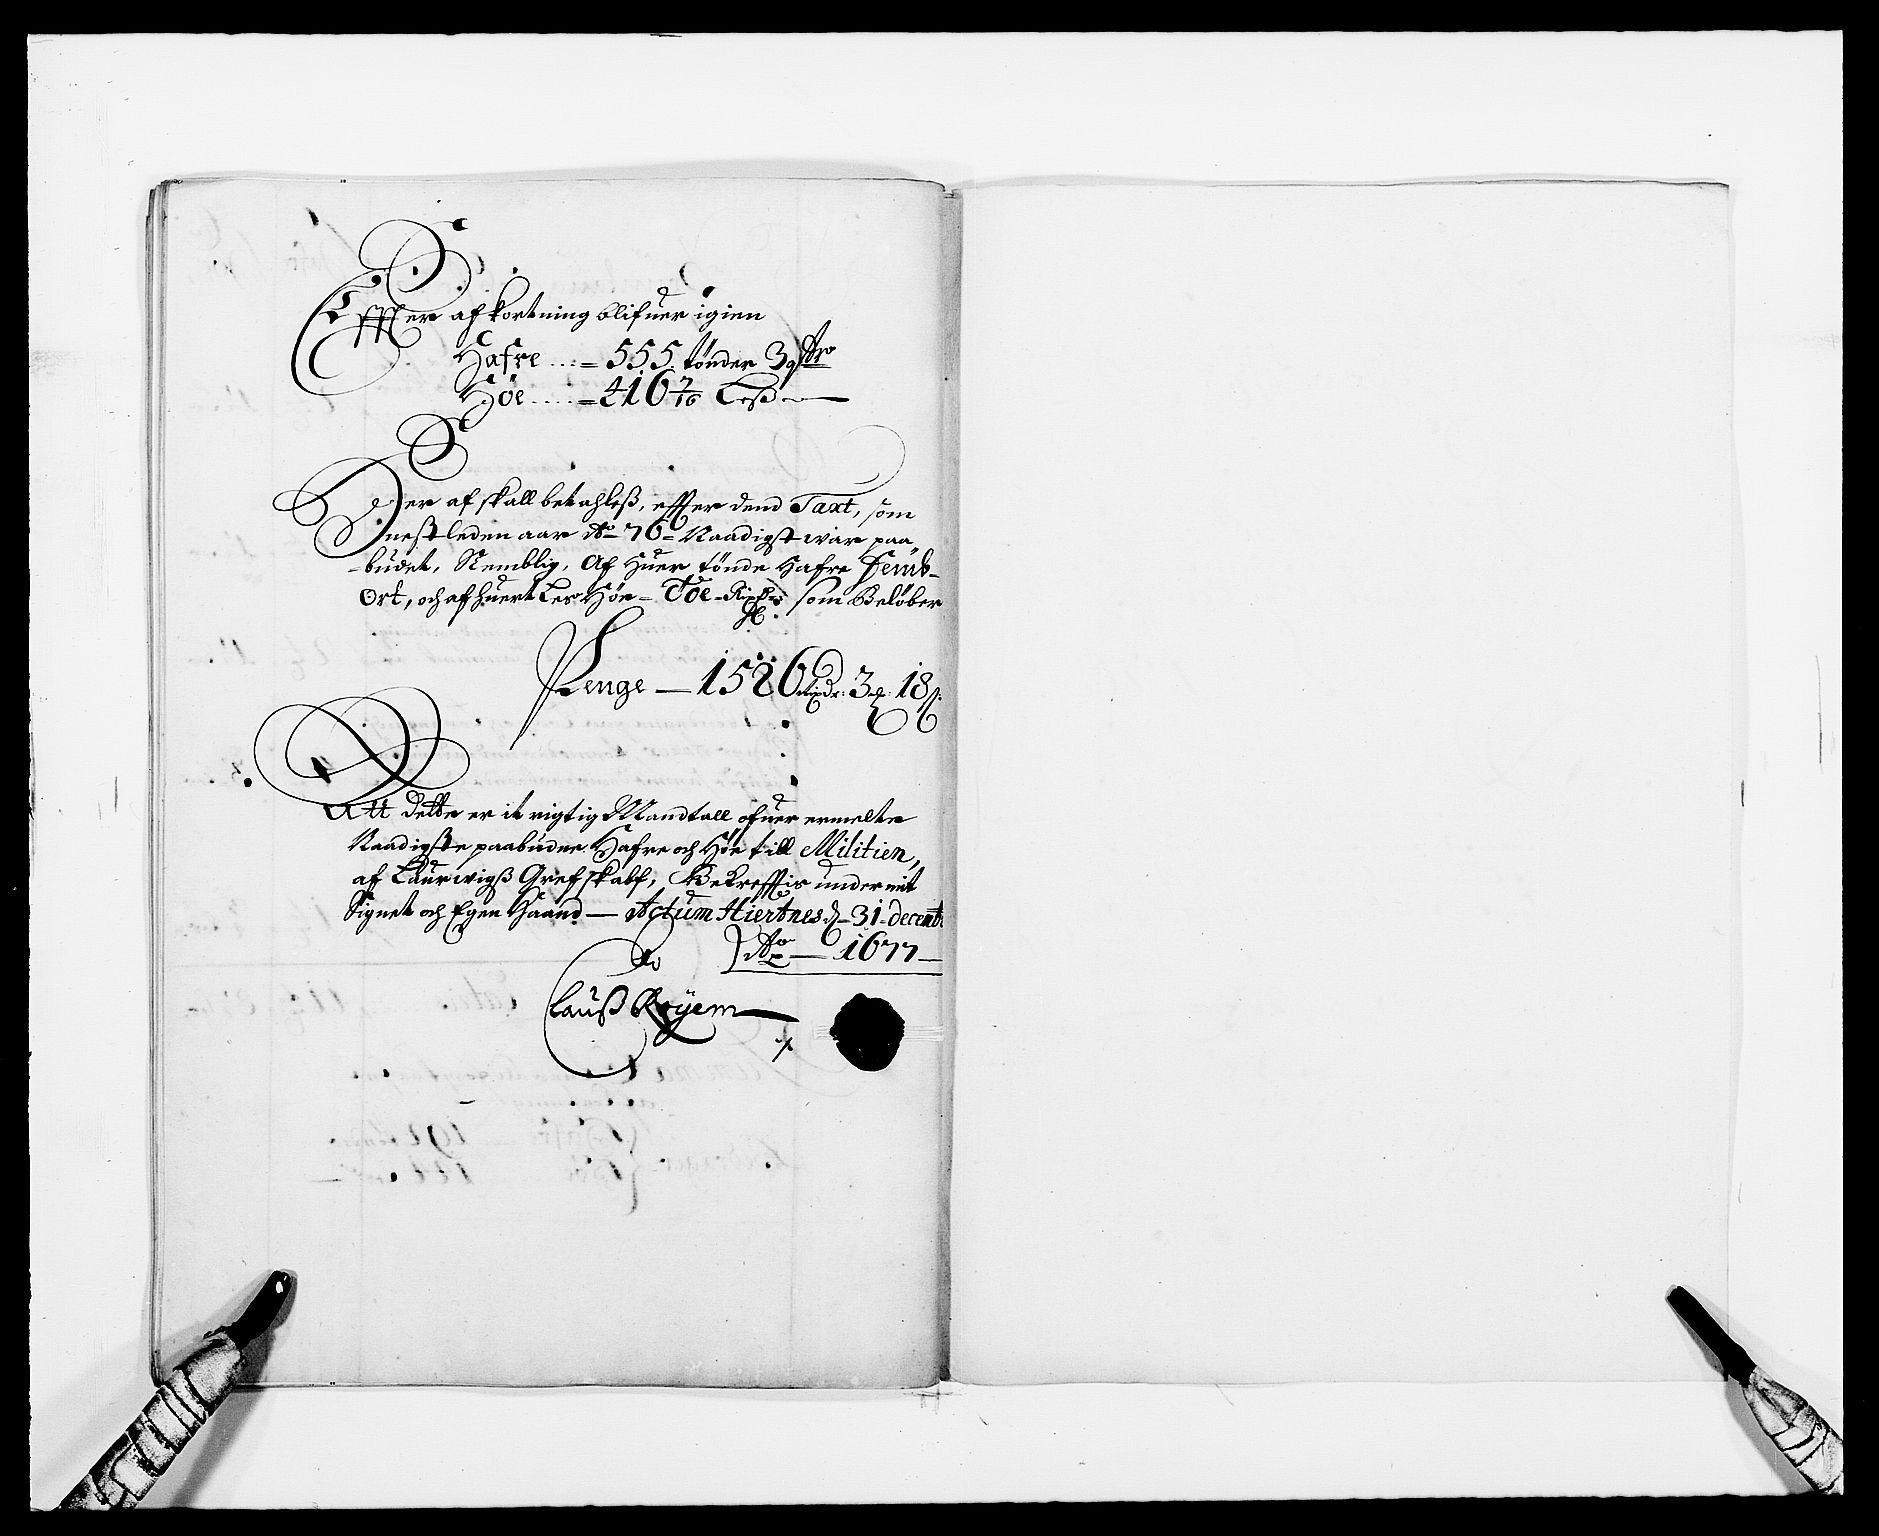 Effter afkortning blifuer igien
Hafre .... = 555 tønder 3 qtr
Høe ..... = 416 7/16 Leß
Der af skall betahleß, effter dend Taxt, som
nestleden aar Ao 76 = Naadigst war paa
-budet, Nemblig, Af Huer tønde Hafre Femb-
Ort, och af huert Les Høe = Toe = som Beløber
Penge — 1586 Rixdr: 3 18 ß
Att dette er it rigtig Mandtall ofuer ermelte
Naadigste paabudne Hafre och Høe till Militien,
af Laurwigß Grefskabß, Bekrefftis under mit
Signet och Egen Haand — Actum Hiertnes d = 31 = decemb
Ao — 1677 —
Clauß Røyem